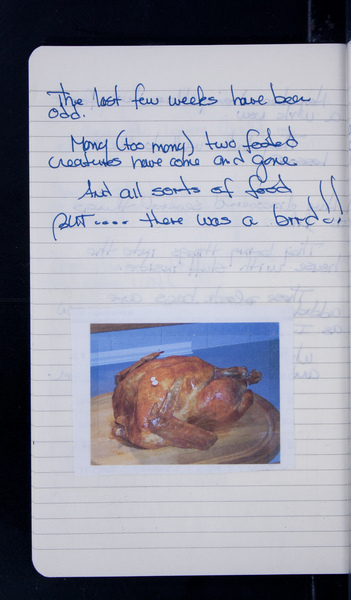 The last few weeks have been
odd.
Many (too many) two footed
creatures have come and gone.
And all sorts of food
but.... there was a bird!!